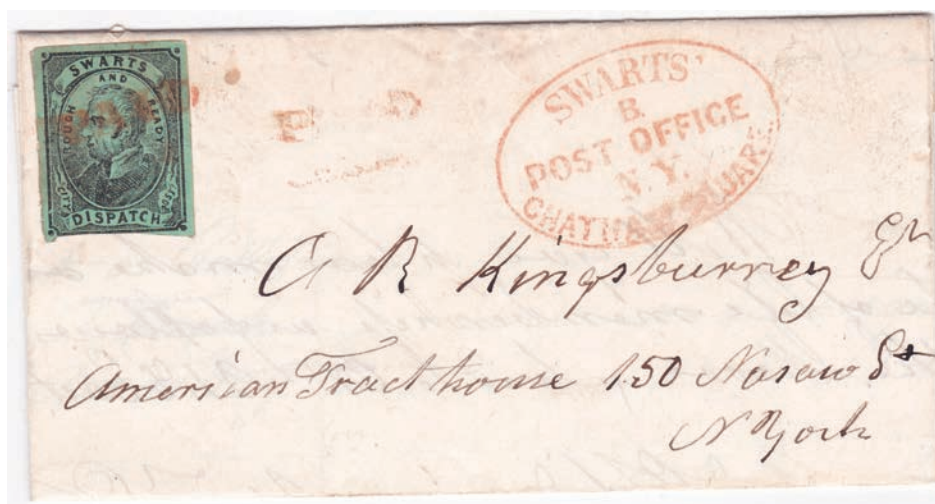 SWARTS
AND
ROUGH READY
CITY POST
DISPATCH
SWARTS'
B.
POST OFFICE
N.Y.
CHATHAM SQUARE
A R Kingsburrey
American Tract house 150 Nasaw St
N York